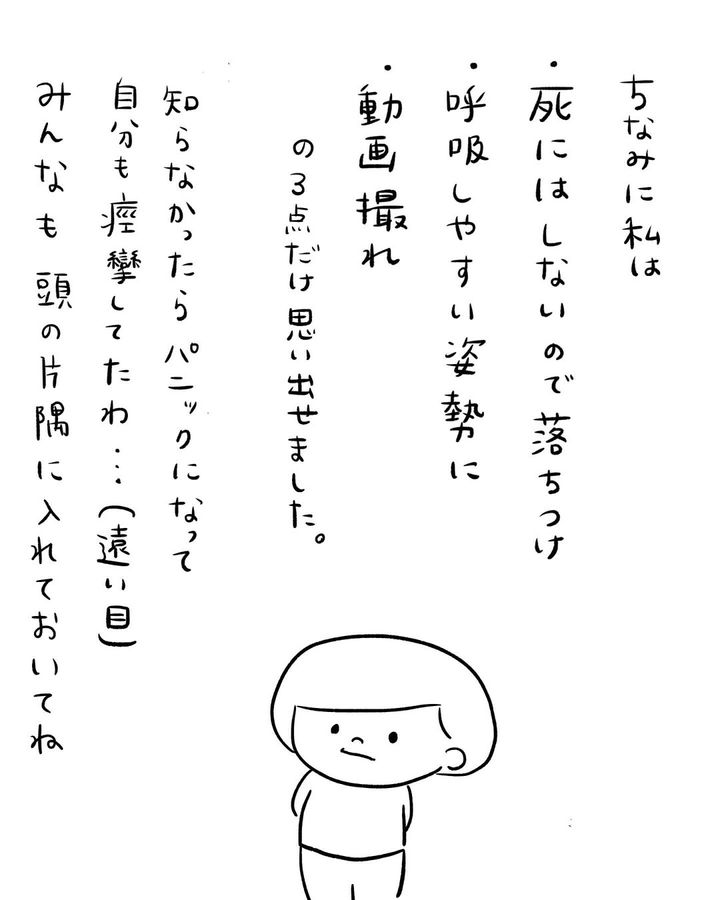 ちなみに私は
・死にはしないので落ちつけ
・呼吸しやすい姿勢に
・動画撮れ
の3点だけ思い出せました。
知らなかったらパニックになって
自分も痙攣してたわ…(遠い目)
みんなも頭の片隅に入れておいてね